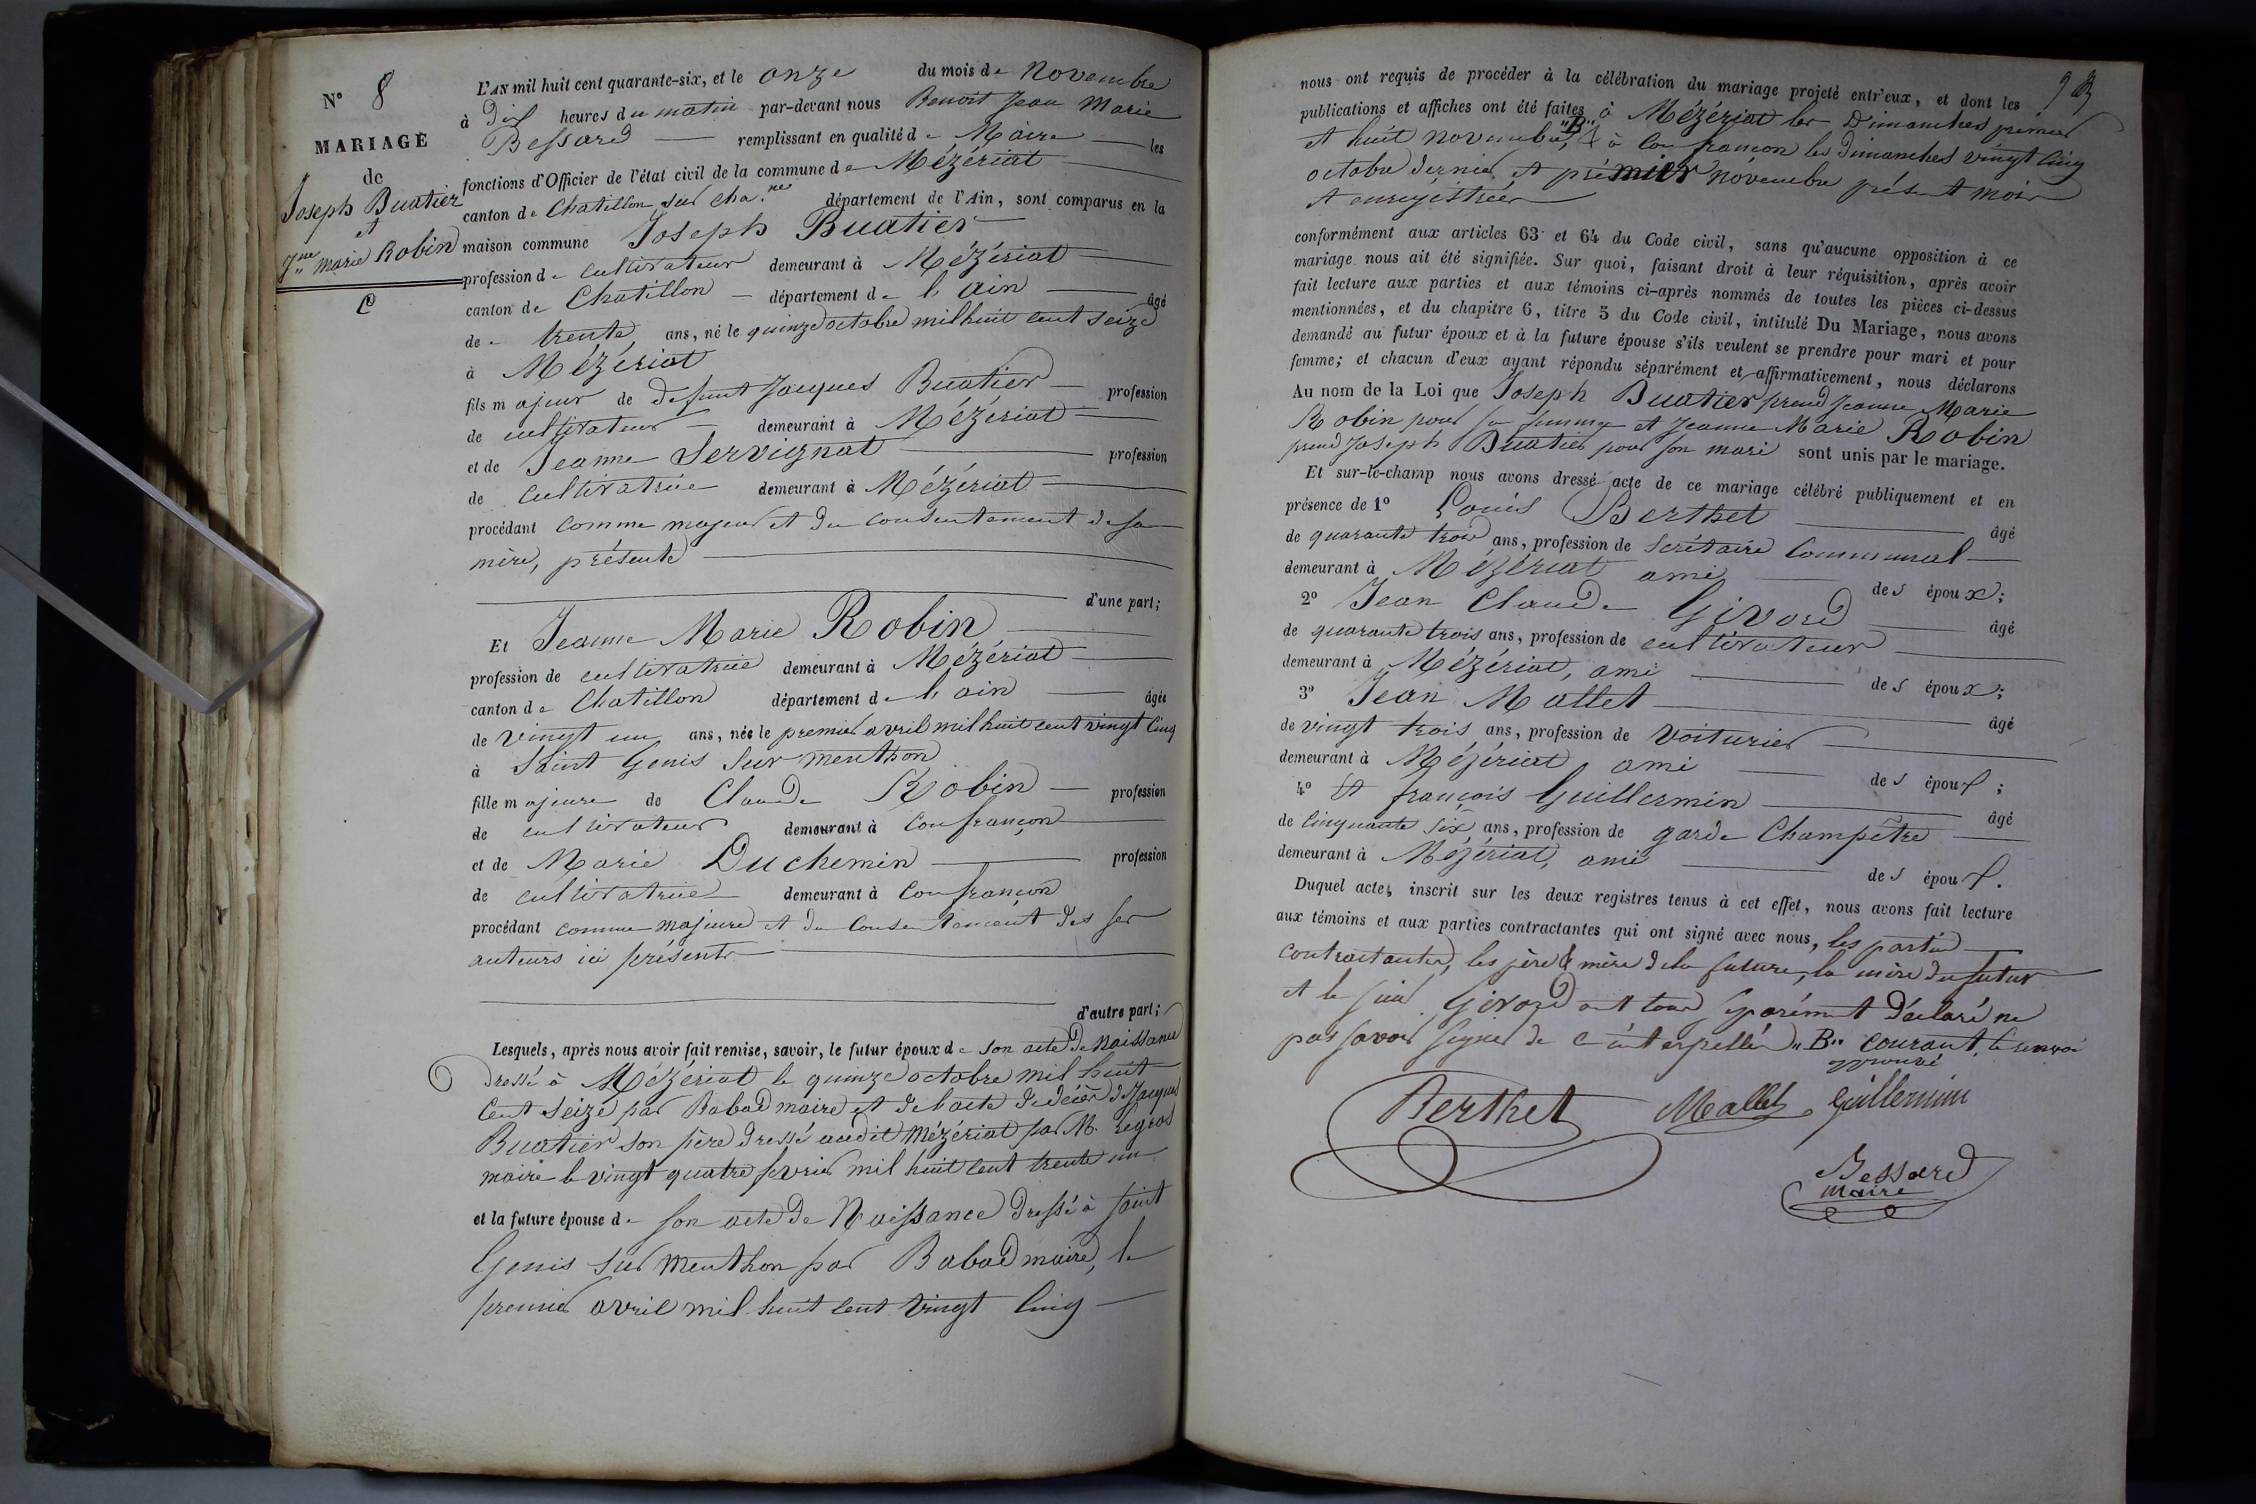 N° 8
MARIAGE
de
Joseph Buatier
et
J.ne Marie Robin
L'AN mil huit cent quarante-six, et le onze du mois de Novembre
à dix heures du matin par-devant nous Benoit Jean Marie
Bessard remplissant en qualité de Maire les
fonctions d'Officier de l'état civil de la commune de Mézériat
canton de Chatillon sur cha.ne département de l'Ain, sont comparus en la
maison commune Joseph Buatier
profession de cultivateur demeurant à Mézériat
canton de Chatillon département de l'ain âgé
de trente ans, né le quinze octobre mil huit cent seize
à Mézériat
fils majeur de defunt Jacques Buatier profession
de cultivateur demeurant à Mézériat
et de Jeanne Servignat profession
de cultivatrice demeurant à Mézériat
procédant comme majeur et du consentement de sa
mère, présente
d'une part;
Et Jeanne Marie Robin
profession de cultivatrice demeurant à Mézériat
canton de Chatillon département de l'ain âgée
de vingt un ans, née le premier avril mil huit cent vingt cinq
à Saint Genis sur menthon
fille majeure de Claude Robin profession
de cultivateur demeurant à Confrançon
et de Marie Duchemin profession
de cultivatrice demeurant à Confrançon
procédant comme majeure et du consentement des ses
auteurs ici présents
d'autre part;
Lesquels, après nous avoir fait remise, savoir, le futur époux de son acte de Naissance
dressé à Mézériat le quinze octobre mil huit
cent seize par Babad maire et de l'acte de décès de Jacques
Buatier son père dressé audit Mézériat par M. Legros
maire le vingt quatre fevrier mil huit cent trente un
et la future épouse de son acte de Naissance dressé à saint
Genis sur Menthon par Babad maire, le
premier avril mil huit cent vingt cinq
nous ont requis de procéder à la célébration du mariage projeté entr'eux, et dont les
publications et affiches ont été faites à Mézériat les Dimanches premier
et huit novembre, "B" & à Confrançon les dimanches vingt cinq
octobre dernier et premier novembre présent mois
et enregistrées
conformément aux articles 63 et 64 du Code civil, sans qu'aucune opposition à ce
mariage nous ait été signifiée. Sur quoi, faisant droit à leur réquisition, après avoir
fait lecture aux parties et aux témoins ci-après nommés de toutes les pièces ci-dessus
mentionnées, et du chapitre 6, titre 5 du Code civil, intitulé Du Mariage, nous avons
demandé au futur époux et à la future épouse s'ils veulent se prendre pour mari et pour
femme; et chacun d'eux ayant répondu séparément et affirmativement, nous déclarons
Au nom de la Loi que Joseph Buatier prend Jeanne Marie
Robin pour sa femme et Jeanne Marie Robin
prend Joseph Buatier pour son mari sont unis par le mariage.
Et sur-le-champ nous avons dressé acte de ce mariage célébré publiquement et en
présence de 1° Louis Berthet âgé
de quarante trois ans, profession de Secrétaire Communal
demeurant à Mézériat ami des époux;
2° Jean Claude Givord âgé
de quarante trois ans, profession de cultivateur
demeurant à Mézériat, ami des époux;
3° Jean Mallet âgé
de vingt trois ans, profession de voiturier
demeurant à Mézériat ami des époux;
4° Et françois Guillermin âgé
de cinquante six ans, profession de garde Champêtre
demeurant à Mézériat, ami des époux.
Duquel acte, inscrit sur les deux registres tenus à cet effet, nous avons fait lecture
aux témoins et aux parties contractantes qui ont signé avec nous, les parties
contractantes, les père & mère de la future, la mère du futur
et le sieur Givord ont tous séparément déclaré ne
pas savoir signer de ce interpellés "B" courant, le renvoi
approuvé
Berthet Mallet Guillermin
Bessard
maire